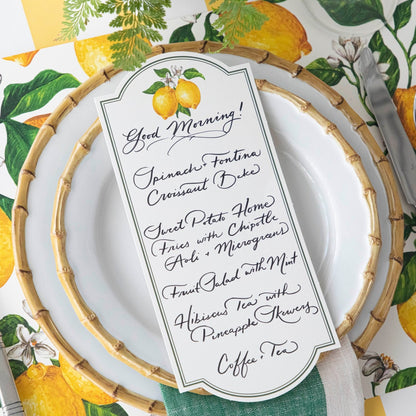 Good Morning!
Spinach + Fontina
Croissant Bake
Sweet Potato Home
Fries with Chipotle
Aoli + Microgreens
Fruit Salad with Mint
Hibiscus Tea with
Pineapple Skewers
Coffee + Tea